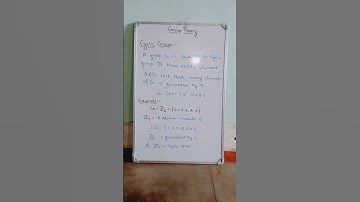 Group Theory
Cyclic Group:-
A group G is said to be cyclic
group if there exist a element
a ∈ G such that every element
of G is generated by a.
Example:-
G = Z6 = {0,1,2,3,4,5}
Z6 = addition modulo 6
Z6 is generated by 1
So Z6 is cyclic group.